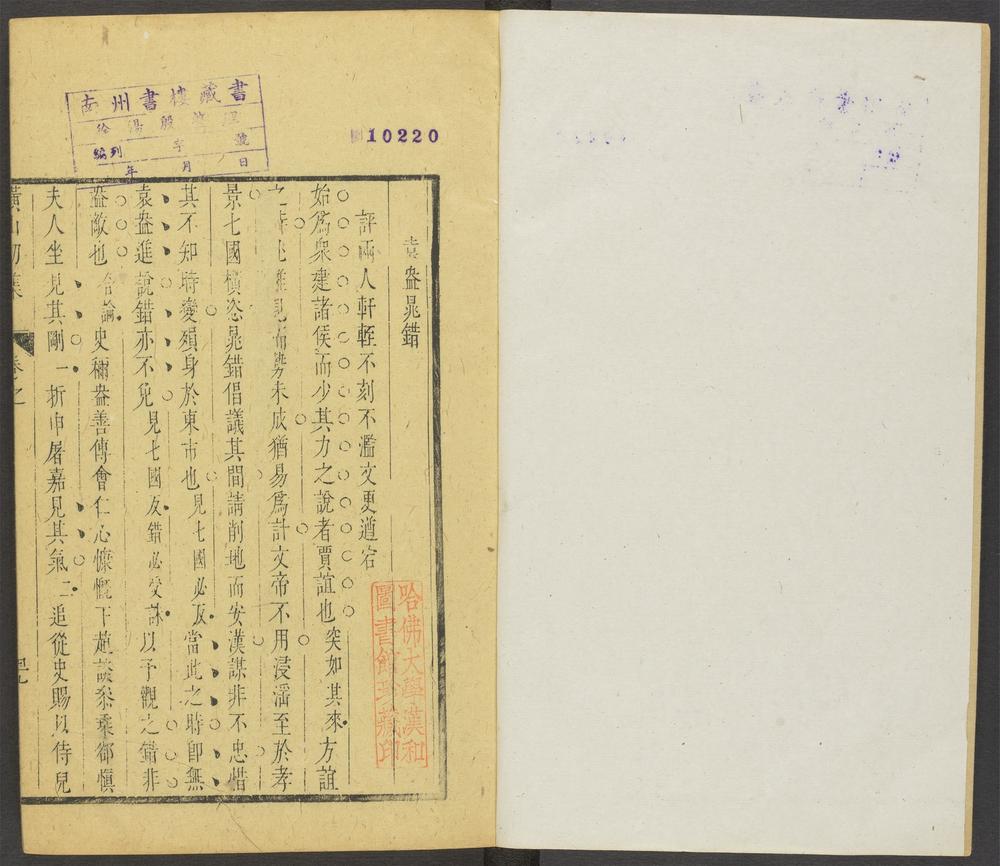 南州書樓藏書
徐湯殷
字 號
編列
年 月 日
10220
袁盎晁錯
評兩人軒輊不刻不濫文更遒宕
始為衆建諸侯而少其力之說者賈誼也突如其來方誼
之時 而勢未成猶易爲計文帝不用浸淫至於孝
景七國橫恣晁錯倡議其間請削地而安漢謀非不忠惜
其不知時變殞身於東市也見七國必反當此之時卽無
袁盎進說錯亦不免見七國反錯必受誅以予觀之錯非
盎敵也合論史稱盎善傅會仁心慷慨下趙談參乘卻愼
夫人坐見其剛一折申屠嘉見其氣二追從史賜以侍兒
初集
卷之
哈佛大學漢和
圖書館珍藏印